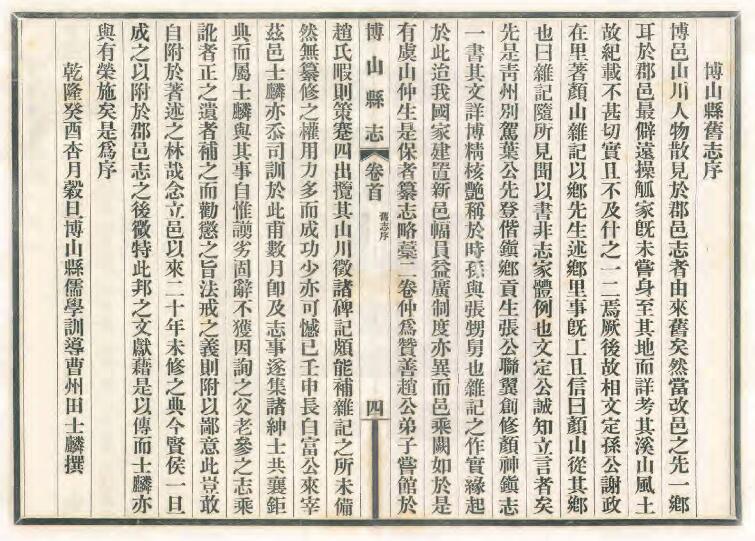 博山縣舊志序
博邑山川人物散見於郡邑志者由來舊矣然當改邑之先一鄉
耳於郡邑最僻遠操觚家既未嘗身至其地而詳考其溪山風土
故紀載不甚切實且不及什之一二焉厥後故相文定孫公謝政
在里著顏山雜記以鄉先生述鄉里事既工且信曰顏山從其鄉
也曰雜記隨所見聞以書非志家體例也文定公誠知立言者矣
先是青州別駕葉公先登偕鎮鄉貢生張公聯翼創修顏神鎮志
一書其文詳博精核艷稱於時孫與張甥舅也雜記之作實緣起
於此迨我國家建置新邑幅員益廣制度亦異而邑乘闕如於是
有虞山仲生是保者纂志略藁二卷仲爲贊善趙公弟子嘗館於
博山縣志 卷首 舊志序 四
趙氏暇則策蹇四出攬其山川徵諸碑記頗能補雜記之所未備
然無纂修之權用力多而成功少亦可憾已壬申長白富公來宰
茲邑士麟亦忝司訓於此甫數月卽及志事遂集諸紳士共襄鉅
典而屬士麟與其事自惟謭劣固辭不獲因詢之父老參之志乘
訛者正之遺者補之而勸懲之旨法戒之義則附以鄙意此豈敢
自附於著述之林哉念立邑以來二十年未修之典今賢侯一旦
成之以附於郡邑志之後微特此邦之文獻藉是以傳而士麟亦
與有榮施矣是爲序
乾隆癸酉杏月穀旦博山縣儒學訓導曹州田士麟撰